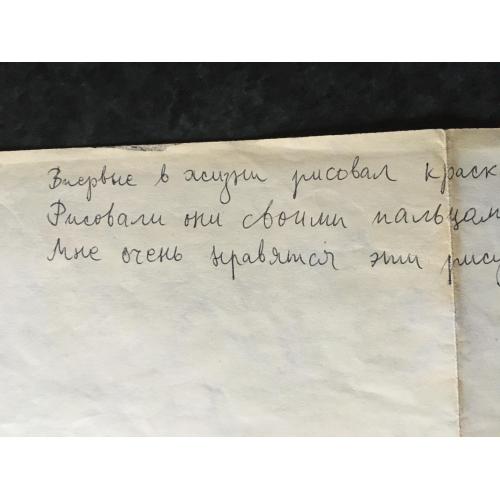 Впервые в жизни рисовал краск
Рисовали они своими пальцам
Мне очень нравятся эти рису